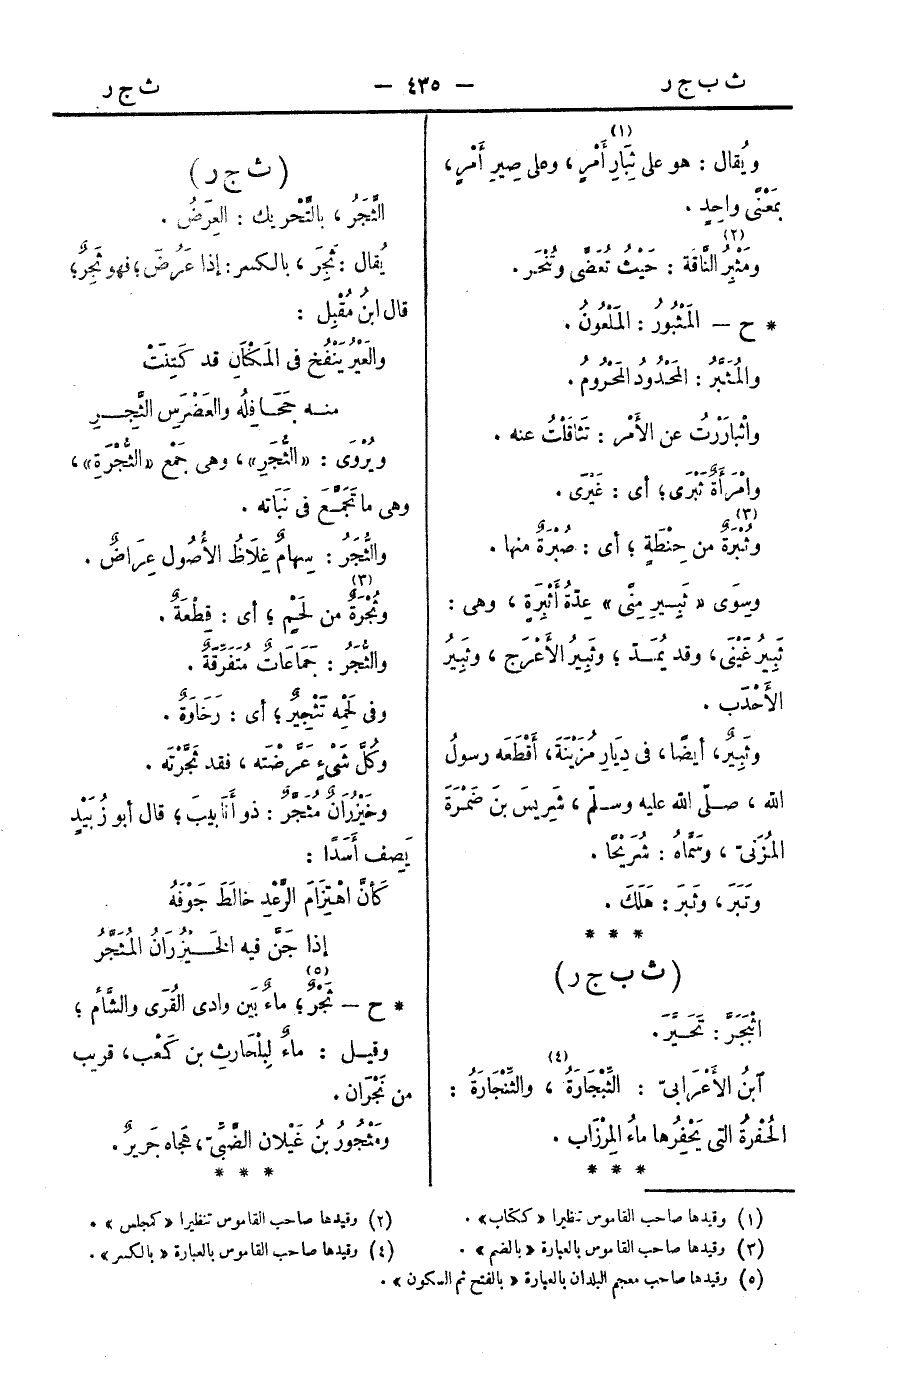 ث ب ج ر — ٤٣٥ — ث ج ر
ويُقال : هو على ثِبَارِ أَمْرٍ (١) ، وعلى صِيرِ أَمْرٍ ،
بمَعْنًى واحِدٍ .
ومَثْبِرُ النَّاقَة (٢) : حَيْثُ تُعَضَّى وتُنْحَر .
* ح — المَثْبُورُ : المَلْعُونُ .
والمُثَبَّرُ : المَحْدُودُ المَحْرُوم .
واثْبَارَرْتُ عن الأَمْر : تَثَاقَلْتُ عنه .
وامْرَأَةٌ ثَبْرَى ؛ أى : غَيْرَى .
وثُبْرَةٌ (٣) من حِنْطَةٍ ؛ أى : صُبْرَةٌ منها .
وسِوَى « ثَبِيرِ مِنًى » عِدَّةُ أَثْبِرَةٍ ، وهى :
ثَبِيرُ غَيْنَى ، وقد يُمَدّ ؛ وثَبِيرُ الأَعْرَج ، وثَبِيرُ
الأَحْدَب .
وثَبِيرٌ ، أيضًا ، فى دِيَارِ مُزَيْنَةَ ، أَقْطَعَه رسولُ
الله ، صلّى الله عليه وسلّم ، شَرِيسَ بنَ ضَمْرَةَ
المُزَنىّ ، وسَمَّاهُ : شُرَيْحًا .
وثَبَرَ ، وثَبِرَ : هَلَكَ .
* * *
( ث ب ج ر )
اثْبَجَرَّ : تَحَيَّرَ .
آبنُ الأَعْرَابىّ : الثِّبْجَارَةُ (٤) ، والثِّنْجَارَةُ :
الحُفْرَةُ التى يَحْفِرُها ماءُ المِرْزَاب .
* * *
( ث ج ر )
الثَّجَرُ ، بالتَّحْرِيك : العِرَضُ .
يُقال : ثَجِرَ ، بالكسر : إذا عَرُضَ ؛ فهو ثَجِرٌ ؛
قال ابنُ مُقْبِل :
والعَيْرُ يَنْفُخ فى المَكْنَانِ قد كَتِنَتْ
منه جَحَافِلُه والعَضْرَسِ الثَّجِر
ويُرْوَى : «الثُّجَرِ» ، وهى جَمْع «الثُّجْرَةِ» ،
وهى ما تَجَمَّعَ فى نَبَاتِه .
والثُّجَرُ : سِهامٌ غِلَاظُ الأُصُولِ عِرَاضٌ .
وثُجْرَةٌ (٣) من لَحْمٍ ؛ أى : قِطْعَةٌ .
والثُّجَرُ : جَمَاعَاتٌ مُتَفَرِّقَةٌ .
وفى لَحْمِه تَثْجِيرٌ ؛ أى : رَخَاوَةٌ .
وكُلُّ شَىْءٍ عَرَّضْتَه ، فقد ثَجَّرْتَه .
وخَيْزُرَانٌ مُثَجَّرٌ : ذو أَنَابِيبَ ؛ قال أبو زُبَيْدٍ
يَصِف أَسَدًا :
كَأَنَّ اهْتِزَامَ الرَّعْدِ خالَطَ جَوْفَهُ
إذا جَنَّ فيه الخَيْزُرَانُ المُثَجَّرُ
* ح — ثَجْرٌ (٥) ؛ ماءٌ بَيْن وادى القُرَى والشَّأم ؛
وقيل : ماءٌ لِبَلْحَارِثِ بن كَعْب ، قريب
من نَجْرَان .
ومَثْجُورُ بنُ غَيْلان الضَّبِّىّ ، هَجَاه جَرِيرٌ .
* * *
(١) وقيدها صاحب القاموس تنظيرا « ككتاب » .
(٢) وقيدها صاحب القاموس تنظيرا « كمجلس » .
(٣) وقيدها صاحب القاموس بالعبارة « بالضم » .
(٤) وقيدها صاحب القاموس بالعبارة « بالكسر » .
(٥) وقيدها صاحب معجم البلدان بالعبارة « بالفتح ثم السكون » .